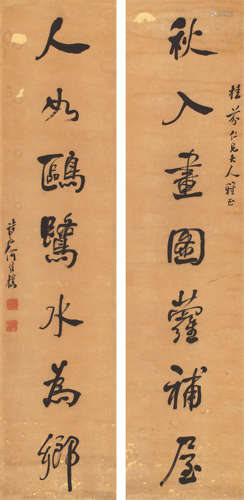 桂芬仁兄大人雅正
秋入畫圖蘿補屋
人如鷗鷺水為鄉
詩孫何維樸